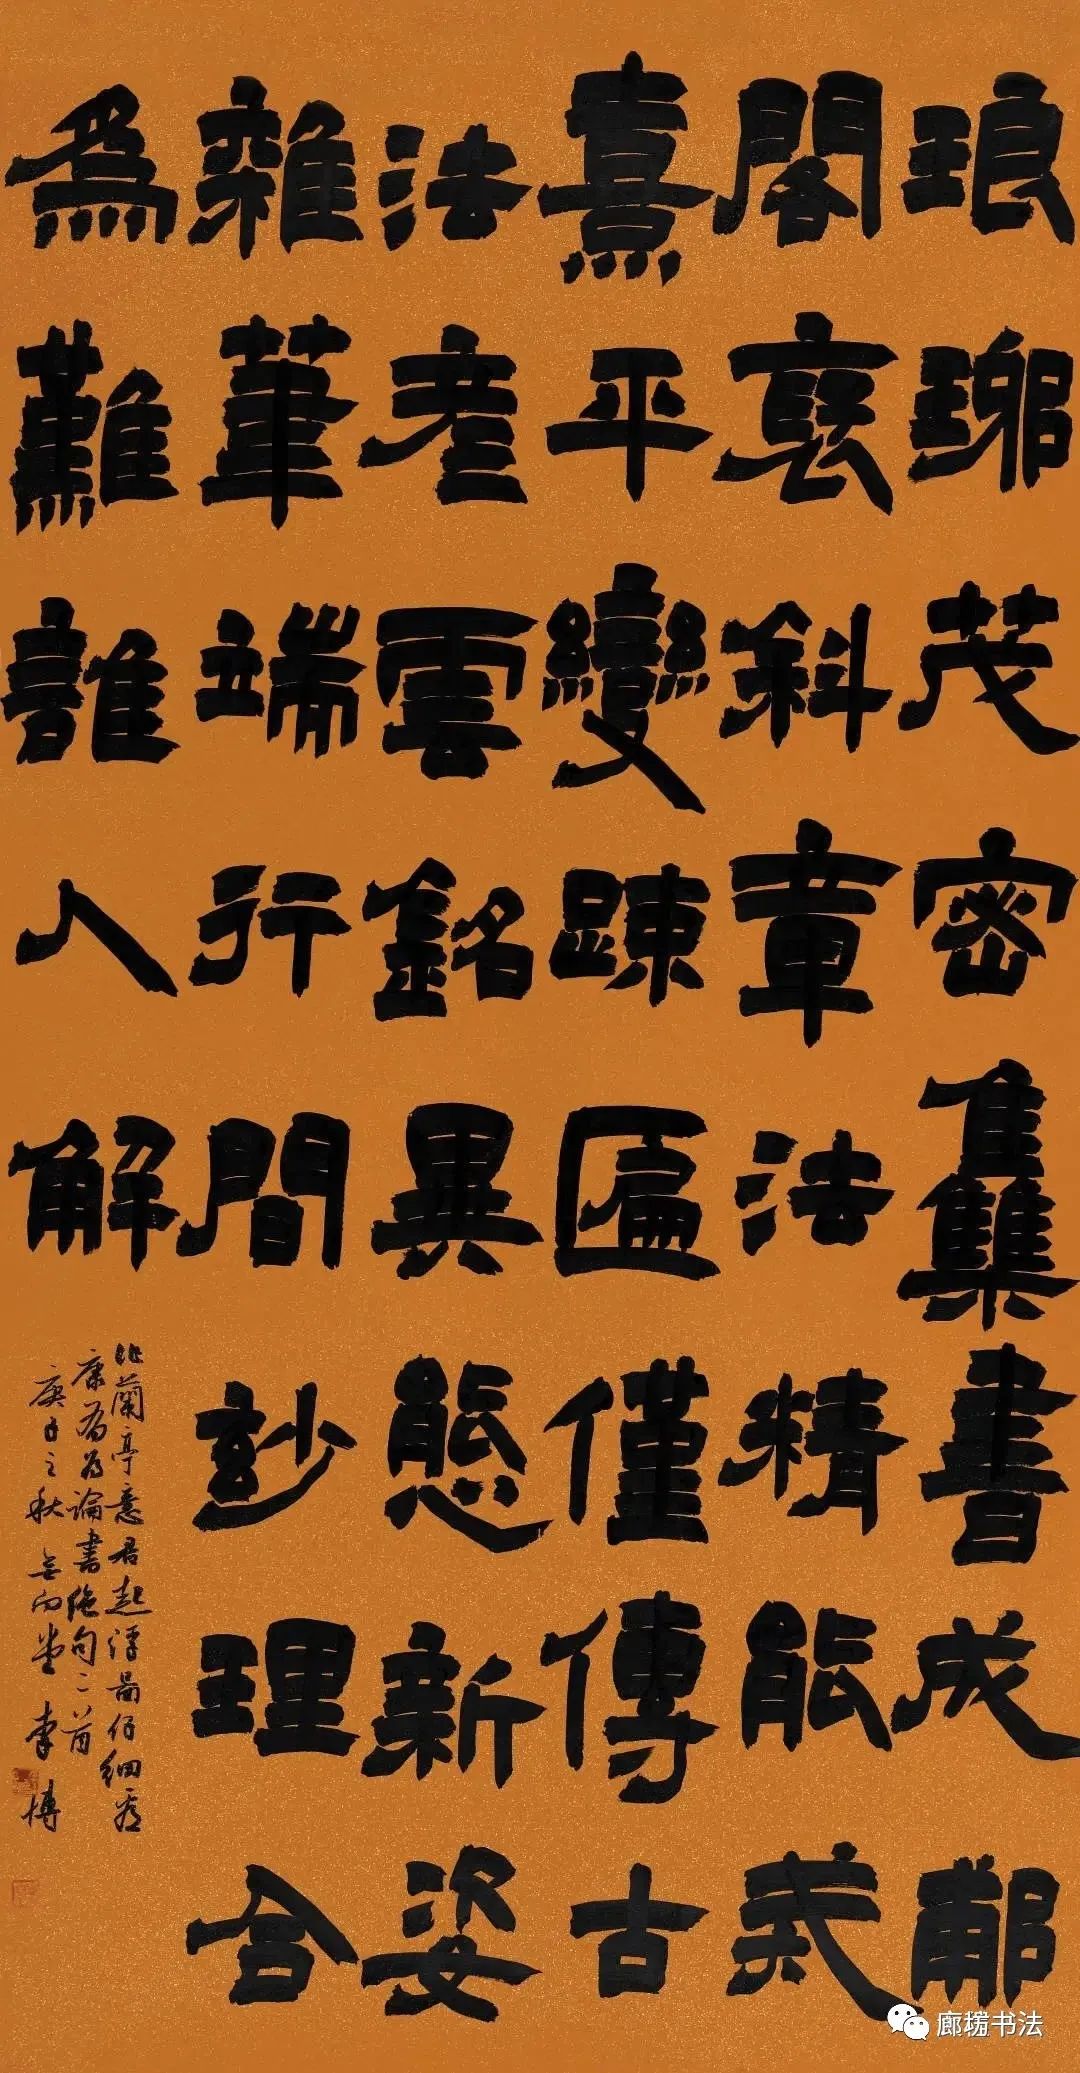 琅琊茂密集書成郙
閣裒斜章法精能
熹平變踈匾僅傳古
法雲銘異態新姿
雜筆端行間玅理合
為難誰人解
比蘭亭意君起浮啚仔細看
康有為論書絕句二首
庚子之秋李博
廊瑎书法